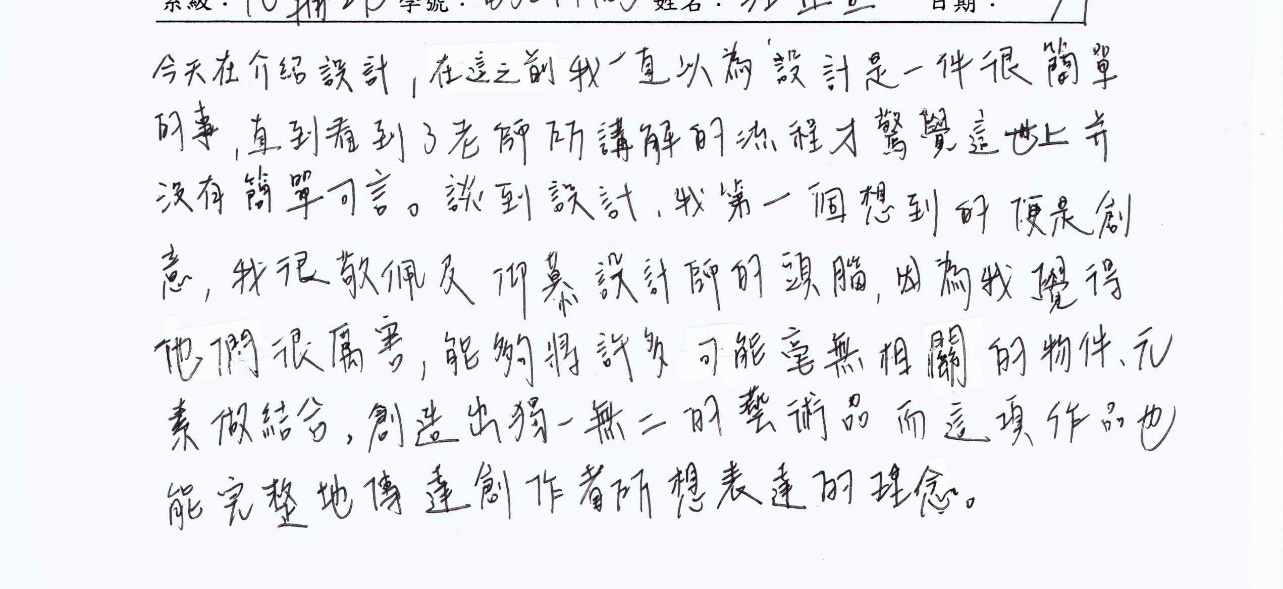 系級： 學號： 姓名： 日期：
今天在介紹設計，在這之前我一直以為設計是一件很簡單
的事，直到看到了老師所講解的流程才驚覺這世上並
沒有簡單可言。談到設計，我第一個想到的便是創
意，我很敬佩及仰慕設計師的頭腦，因為我覺得
他們很厲害，能夠將許多可能毫無相關的物件、元
素做結合，創造出獨一無二的藝術品而這項作品也
能完整地傳達創作者所想表達的理念。